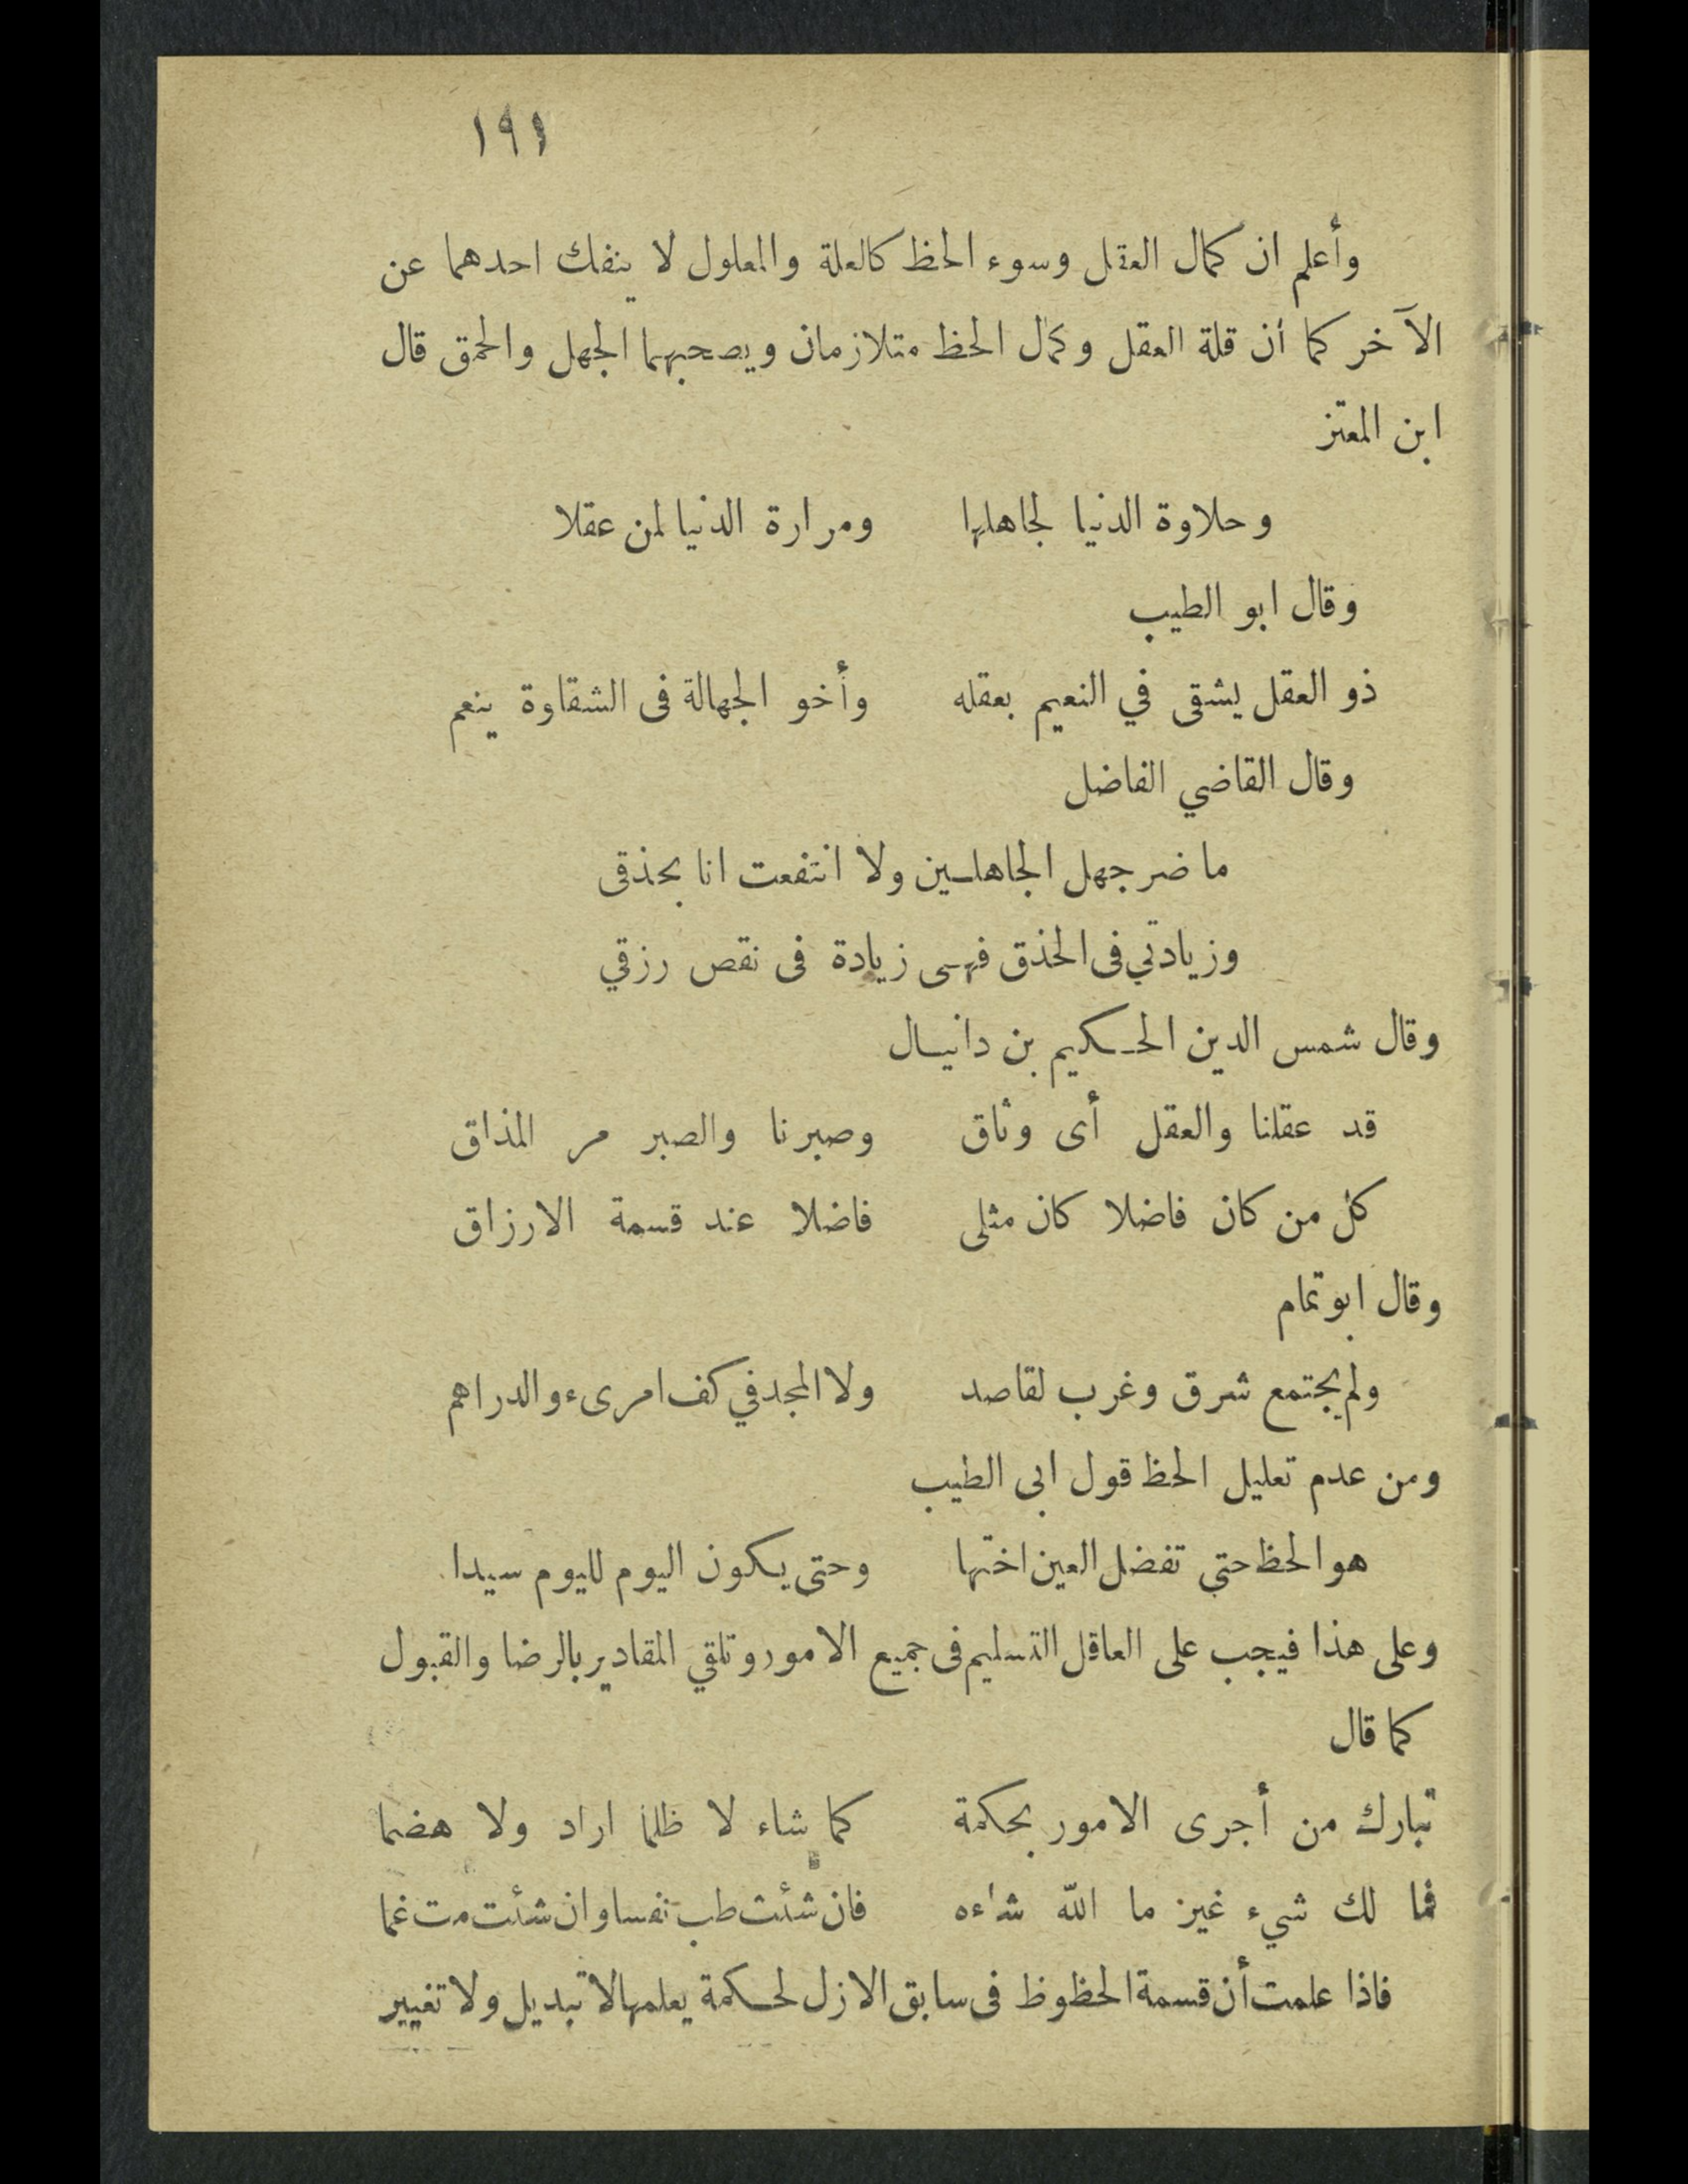 ١٩١
وأعلم ان كمال العقل وسوء الحظ كالعلة والمعلول لا ينفك احدهما عن
الآخر كما أن قلة العقل وكمال الحظ متلازمان ويصحبهما الجهل والحمق قال
ابن المعتز
وحلاوة الدنيا لجاهلها ومرارة الدنيا لمن عقلا
وقال ابو الطيب
ذو العقل يشقى في النعيم بعقله وأخو الجهالة فى الشقاوة ينعم
وقال القاضي الفاضل
ما ضر جهل الجاهلين ولا انتفعت انا بحذقى
وزيادتي فى الحذق فهى زيادة فى نقص رزقي
وقال شمس الدين الحكيم بن دانيال
قد عقلنا والعقل أى وثاق وصبرنا والصبر مر المذاق
كل من كان فاضلا كان مثلى فاضلا عند قسمة الارزاق
وقال ابو تمام
ولم يجتمع شرق وغرب لقاصد ولا المجد في كف امرىء والدراهم
ومن عدم تعليل الحظ قول ابى الطيب
هو الحظ حتى تفضل العين اختها وحتى يكون اليوم لليوم سيدا
وعلى هذا فيجب على العاقل التسليم فى جميع الامور وتلقي المقادير بالرضا والقبول
كما قال
تبارك من أجرى الامور بحكمة كما شاء لا ظلما اراد ولا هضما
فما لك شيء غير ما الله شاءه فان شئت طب نفسا وان شئت مت غما
فاذا علمت أن قسمة الحظوظ فى سابق الازل لحكمة يعلمها لا تبديل ولا تغيير